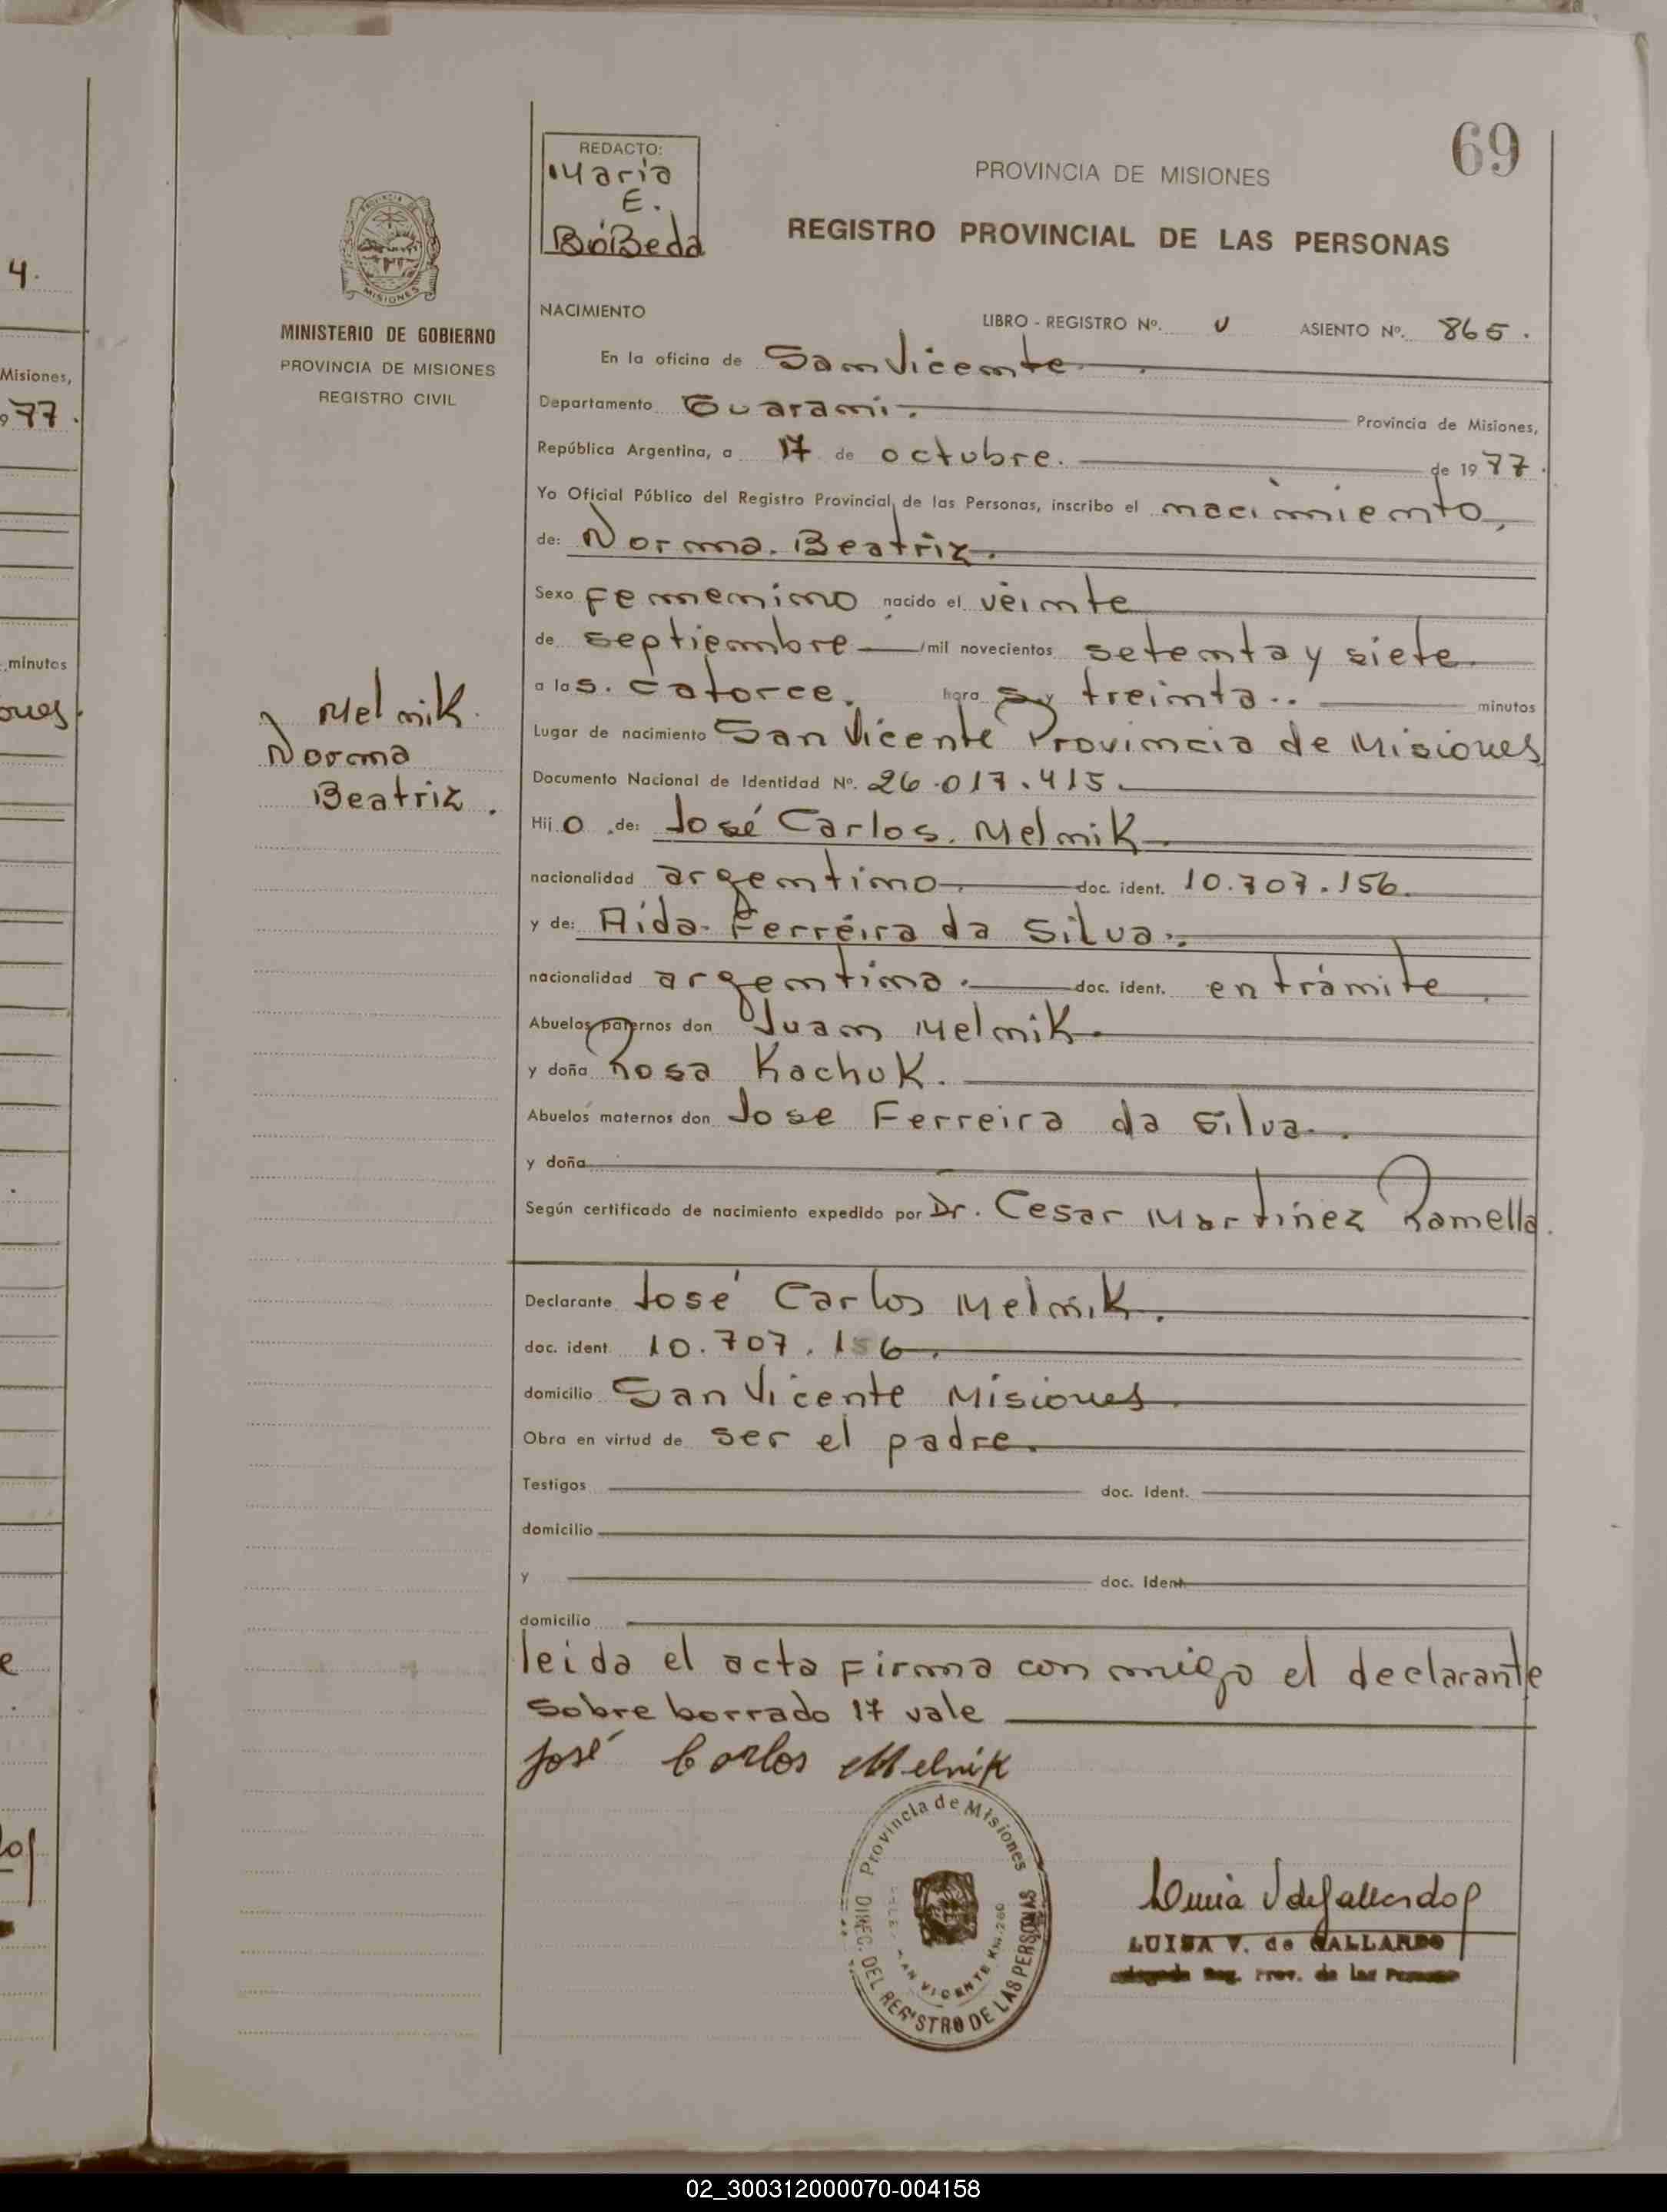 69
REDACTO:
Maria
E.
BóBeda
PROVINCIA DE MISIONES
REGISTRO PROVINCIAL DE LAS PERSONAS
PROVINCIA DE
MISIONES
MINISTERIO DE GOBIERNO
PROVINCIA DE MISIONES
REGISTRO CIVIL
NACIMIENTO LIBRO - REGISTRO Nº. U ASIENTO Nº. 865.
En la oficina de San Vicente
Departamento Guarani. Provincia de Misiones,
República Argentina, a 17 de octubre. de 1977.
Yo Oficial Público del Registro Provincial de las Personas, inscribo el nacimiento,
de: Norma. Beatriz.
Sexo femenino nacido el veinte
de septiembre /mil novecientos setenta y siete
a las. catorce. hora s y treinta.. minutos
Lugar de nacimiento San Vicente Provincia de Misiones
Documento Nacional de Identidad Nº. 26.017.415.
Hij o de: José Carlos. Melnik
nacionalidad argentino. doc. ident. 10.707.156.
y de: Aida. Ferréira da Silva.
nacionalidad argentina. doc. ident. en trámite
Abuelos paternos don Juan Melnik.
y doña Rosa Kachuk.
Abuelos maternos don Jose Ferreira da Silva.
y doña
Según certificado de nacimiento expedido por Dr. Cesar Martinez Ramella.
Declarante José Carlos Melnik.
doc. ident. 10.707.156.
domicilio San Vicente Misiones
Obra en virtud de ser el padre.
Testigos doc. ident.
domicilio
y doc. ident.
domicilio
leida el acta firma con migo el declarante
sobre borrado 17 vale
José Carlos Melnik
Melnik.
Norma
Beatriz.
Provincia de Misiones
DIREC. DEL REGISTRO DE LAS PERSONAS
SAN VICENTE KM. 260
LUISA V. de GALLARDO
Reg. Prov. de las Personas
4.
Misiones,
977.
minutos
ones.
e
02_300312000070-004158